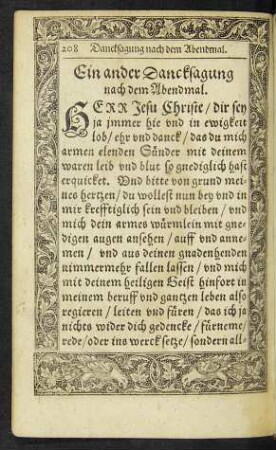 208 Dancksagung nach dem Abendmal.
Ein ander Dancksagung
nach dem Abendmal.
HERR Jesu Christe / dir sey
ja jmmer hie vnd in ewigkeit
lob / ehr vnd danck / das du mich
armen elenden Sünder mit deinem
waren leib vnd blut so gnediglich hast
erquicket. Vnd bitte von grund mei-
nes hertzen / du wollest nun bey vnd in
mir krefftiglich sein vnd bleiben / vnd
mich dein armes würmlein mit gne-
digen augen ansehen / auff vnd anne-
men / vnd aus deinen gnadenhenden
nimmermehr fallen lassen / vnd mich
mit deinem heiligen Geist hinfort in
meinem beruff vnd gantzen leben also
regieren / leiten vnd füren / das ich ja
nichts wider dich gedencke / fürneme /
rede / oder ins werck setze / sondern all-